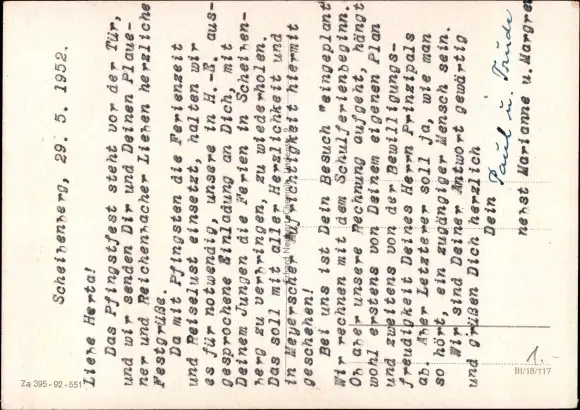 Scheibenberg, 29. 5. 1952.
Liebe Herta!
Das Pfingstfest steht vor der Tür,
und wir senden Dir und Deinen Plaue-
ner und Reichenbacher Lieben herzliche
Festgrüße.
Da mit Pfingsten die Ferienzeit
und Reiselust einsetzt, halten wir
es für notwendig, unsere in H.-E. aus-
gesprochene Einladung an Dich, mit
Deinem Jungen die Ferien in Scheiben-
berg zu verbringen, zu wiederholen.
Das soll mit aller Herzlichkeit und
in Meyerscher Aufrichtigkeit hiermit
geschehen!
Bei uns ist Dein Besuch "eingeplant".
Wir rechnen mit dem Schulferienbeginn.
Ob aber unsere Rechnung aufgeht, hängt
wohl erstens von Deinem eigenen Plan
und zweitens von der Bewilligungs-
freudigkeit Deines Herrn Prinzipals
ab. Aber Letzterer soll ja, wie man
so hört, ein zugängiger Mensch sein.
Wir sind Deiner Antwort gewärtig
und grüßen Dich herzlich
Dein Paul u. Trude
nebst Marianne u. Margret
Za 395-92-551
III/18/117
1.-